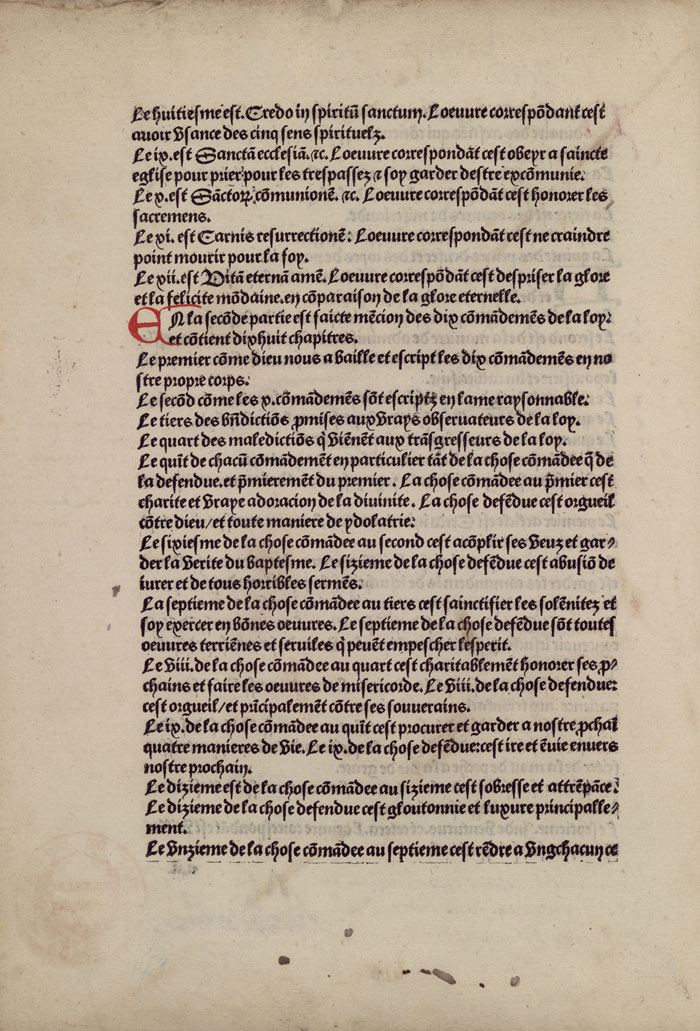 Le huitiesme est. Credo in spiritū sanctum. Loeuure correspōdant cest
auoir vsance des cinq sens spirituelz.
Le ix. est Sanctā ecclesiā. ⁊c. Loeuure correspondāt cest obeyr a saincte
eglise pour prier pour les trespassez ⁊ soy garder destre excōmunie.
Le x. est Sāctoꝝ cōmunionē. ⁊c. Loeuure correspōdāt cest honorer les
sacremens.
Le xi. est Carnis resurrectionē: Loeuure correspondāt cest ne craindre
point mourir pour la foy.
Le xii. est Vitā eternā amē. Loeuure correspōdāt cest despriser la glore
et la felicite mōdaine. en cōparaison de la glore eternelle.
EN la secōde partie est faicte mēcion des dix cōmādemēs de la loy:
et cōtient dixhuit chapitres.
Le premier cōme dieu nous a baille et escript les dix cōmādemēs en no
stre propre corps.
Le secōd cōme les x. cōmādemēs sōt escriptz en lame raysonnable.
Le tiers des bñdictiōs ꝓmises aux vrays obseruateurs de la loy.
Le quart des maledictiōs q̄ viēnēt aux trāsgresseurs de la loy.
Le quīt de chacū cōmādemēt en particulier tāt de la chose cōmādee q̄ de
la defendue. et p̄mierement du premier. La chose cōmādee au p̄mier cest
charite et vraye adoracion de la diuinite. La chose defēdue cest orgueil
cōtre dieu/et toute maniere de ydolatrie:
Le sixiesme de la chose cōmādee au second cest acōplir ses veuz et gar⸗
der la verite du baptesme. Le sizieme de la chose defēdue cest abusiō de
iurer et de tous horribles sermēs.
La septieme de la chose cōmādee au tiers cest sainctifier les solēnitez et
soy exercer en bōnes oeuures. Le septieme de la chose defēdue sōt toutes
oeuures terriēnes et seruiles q̄ peuēt empescher lesperit.
Le viii. de la chose cōmādee au quart cest charitablemēt honorer ses ꝓ⸗
chains et faire les oeuures de misericorde. Le viii. de la chose defendue:
cest orgueil/et prīcipalemēt cōtre ses souuerains.
Le ix. de la chose cōmādee au quīt cest procurer et garder a nostre ꝓchaī
quatre manieres de vie. Le ix. de la chose defēdue: cest ire et ēuie enuers
nostre prochain.
Le dizieme est de la chose cōmādee au sizieme cest sobresse et attrēpāce:
Le dizieme de la chose defendue cest gloutonnie et luxure principalle⸗
ment.
Le vnzieme de la chose cōmādee au septieme cest rēdre a vngchacun ce